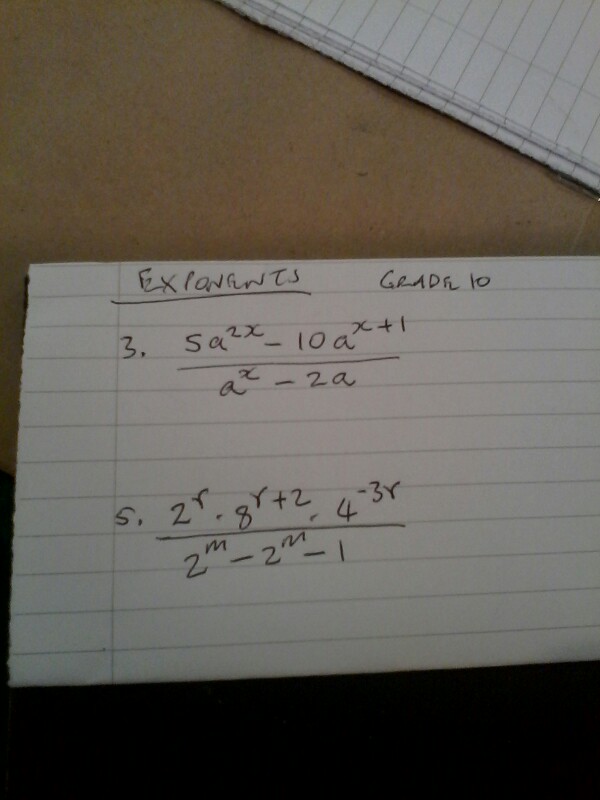 EXPONENTS GRADE 10
3. 5a^{2x} - 10a^{x+1}
a^x - 2a
5. 2^r . 8^{r+2} . 4^{-3r}
2^m - 2^m - 1